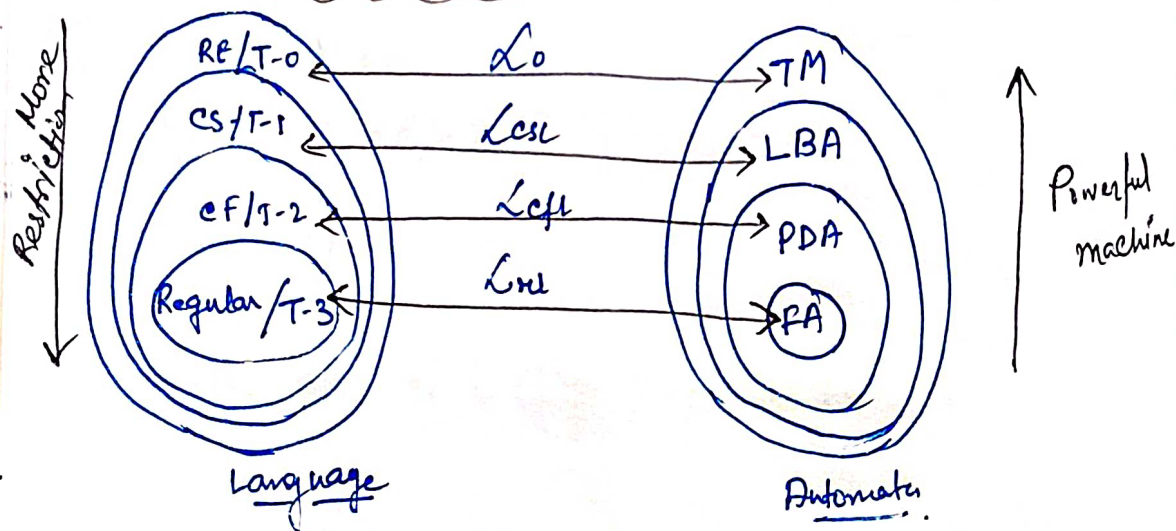 More
Restriction
RE/T-0
CS/T-1
CF/T-2
Regular/T-3
Lo
Lcsl
Lcfl
Lrl
TM
LBA
PDA
FA
Powerful
machine
Language
Automata